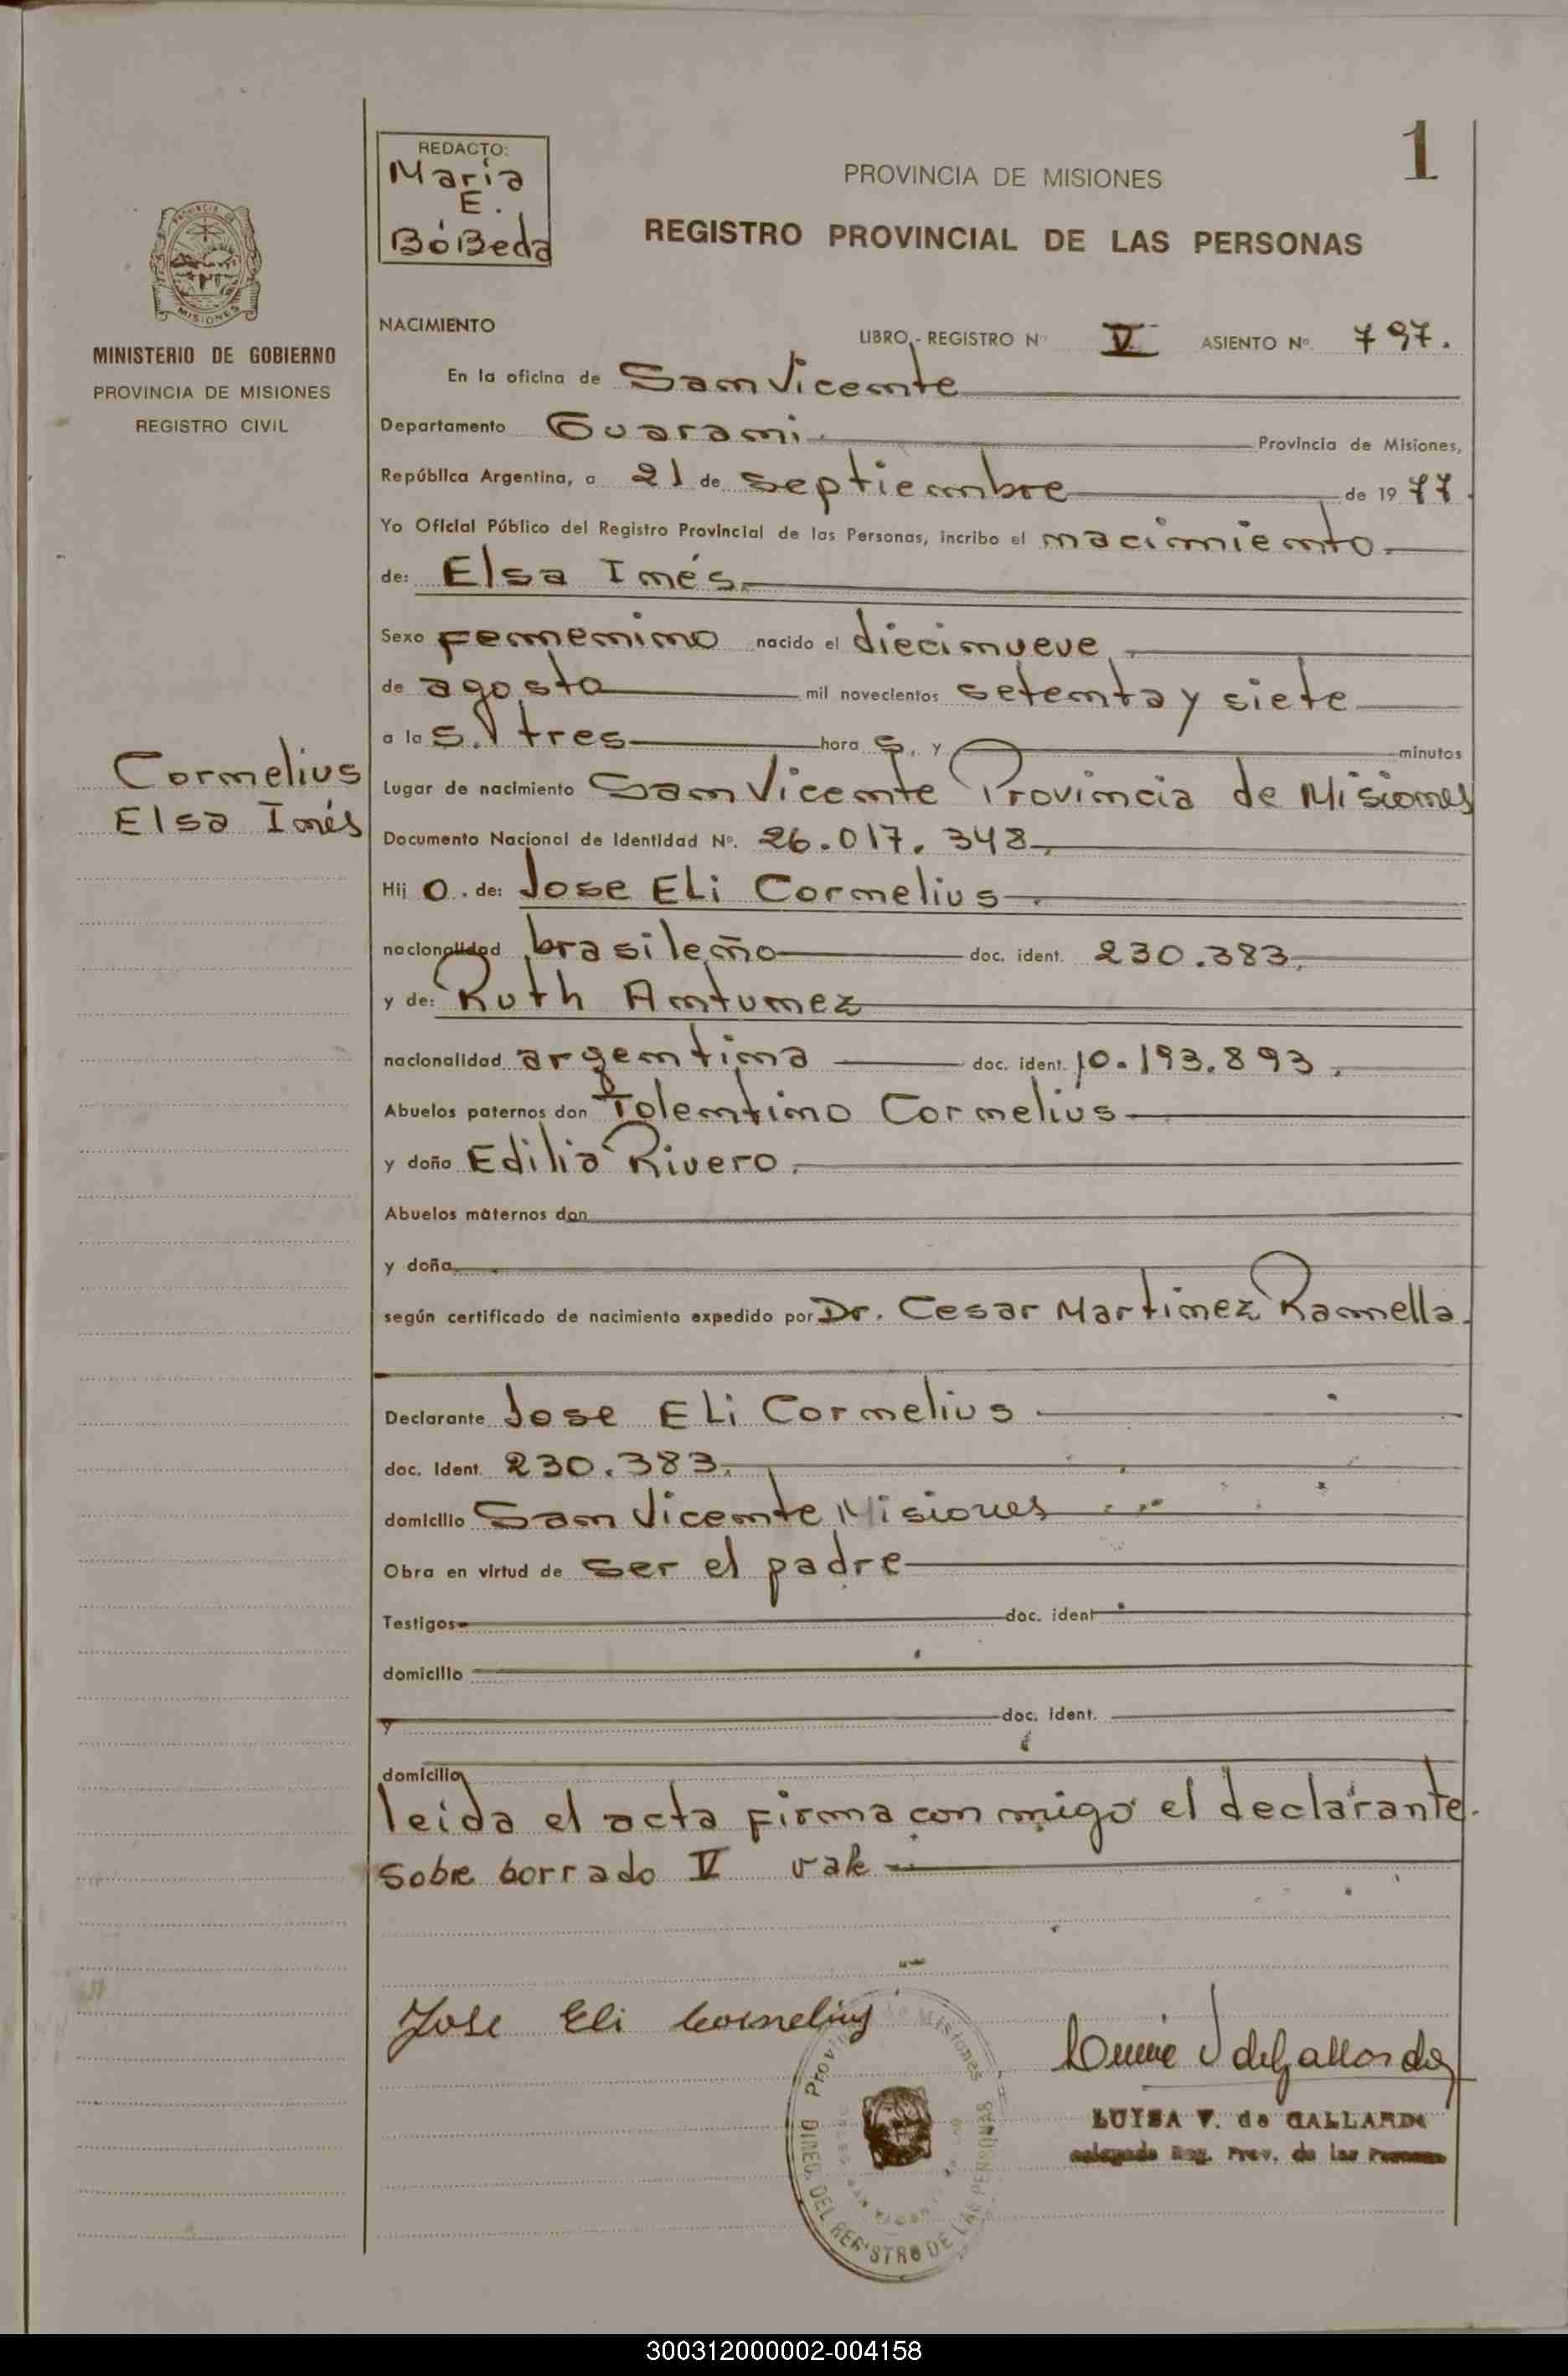 1
REDACTO:
Maria
E.
BóBeda
PROVINCIA DE MISIONES
REGISTRO PROVINCIAL DE LAS PERSONAS
PROVINCIA DE
MISIONES
MINISTERIO DE GOBIERNO
PROVINCIA DE MISIONES
REGISTRO CIVIL
Cornelius
Elsa Inés
NACIMIENTO
LIBRO - REGISTRO Nº V ASIENTO Nº. 797.
En la oficina de San Vicente
Departamento Guarani. Provincia de Misiones,
República Argentina, a 21 de Septiembre de 19 77.
Yo Oficial Público del Registro Provincial de las Personas, incribo el nacimiento
de: Elsa Inés.
Sexo femenino nacido el diecinueve,
de agosto mil novecientos setenta y siete
a la s. tres hora s. y minutos
Lugar de nacimiento San Vicente Provincia de Misiones
Documento Nacional de Identidad Nº. 26.017.348,
Hij o. de: Jose ELi Cornelius
nacionalidad brasileño doc. ident. 230.383,
y de: Ruth Antunez
nacionalidad argentina doc. ident. 10.193.893.
Abuelos paternos don Tolentino Cornelius
y doña Edilia Rivero.
Abuelos maternos don
y doña
según certificado de nacimiento expedido por Dr. Cesar Martinez Ramella.
Declarante Jose ELi Cornelius
doc. Ident. 230.383.
domicilio San Vicente Misiones
Obra en virtud de ser el padre
Testigos doc. ident
domicilio
y doc. ident.
domicilio
leida el acta firma con migo el declarante.
Sobre borrado V vale
Jose Eli Cornelius
Provincia de Misiones
DIREC. DEL REGISTRO DE LAS PERSONAS
LUISA V. de GALLARDO
Delegada Reg. Prov. de las Personas
300312000002-004158